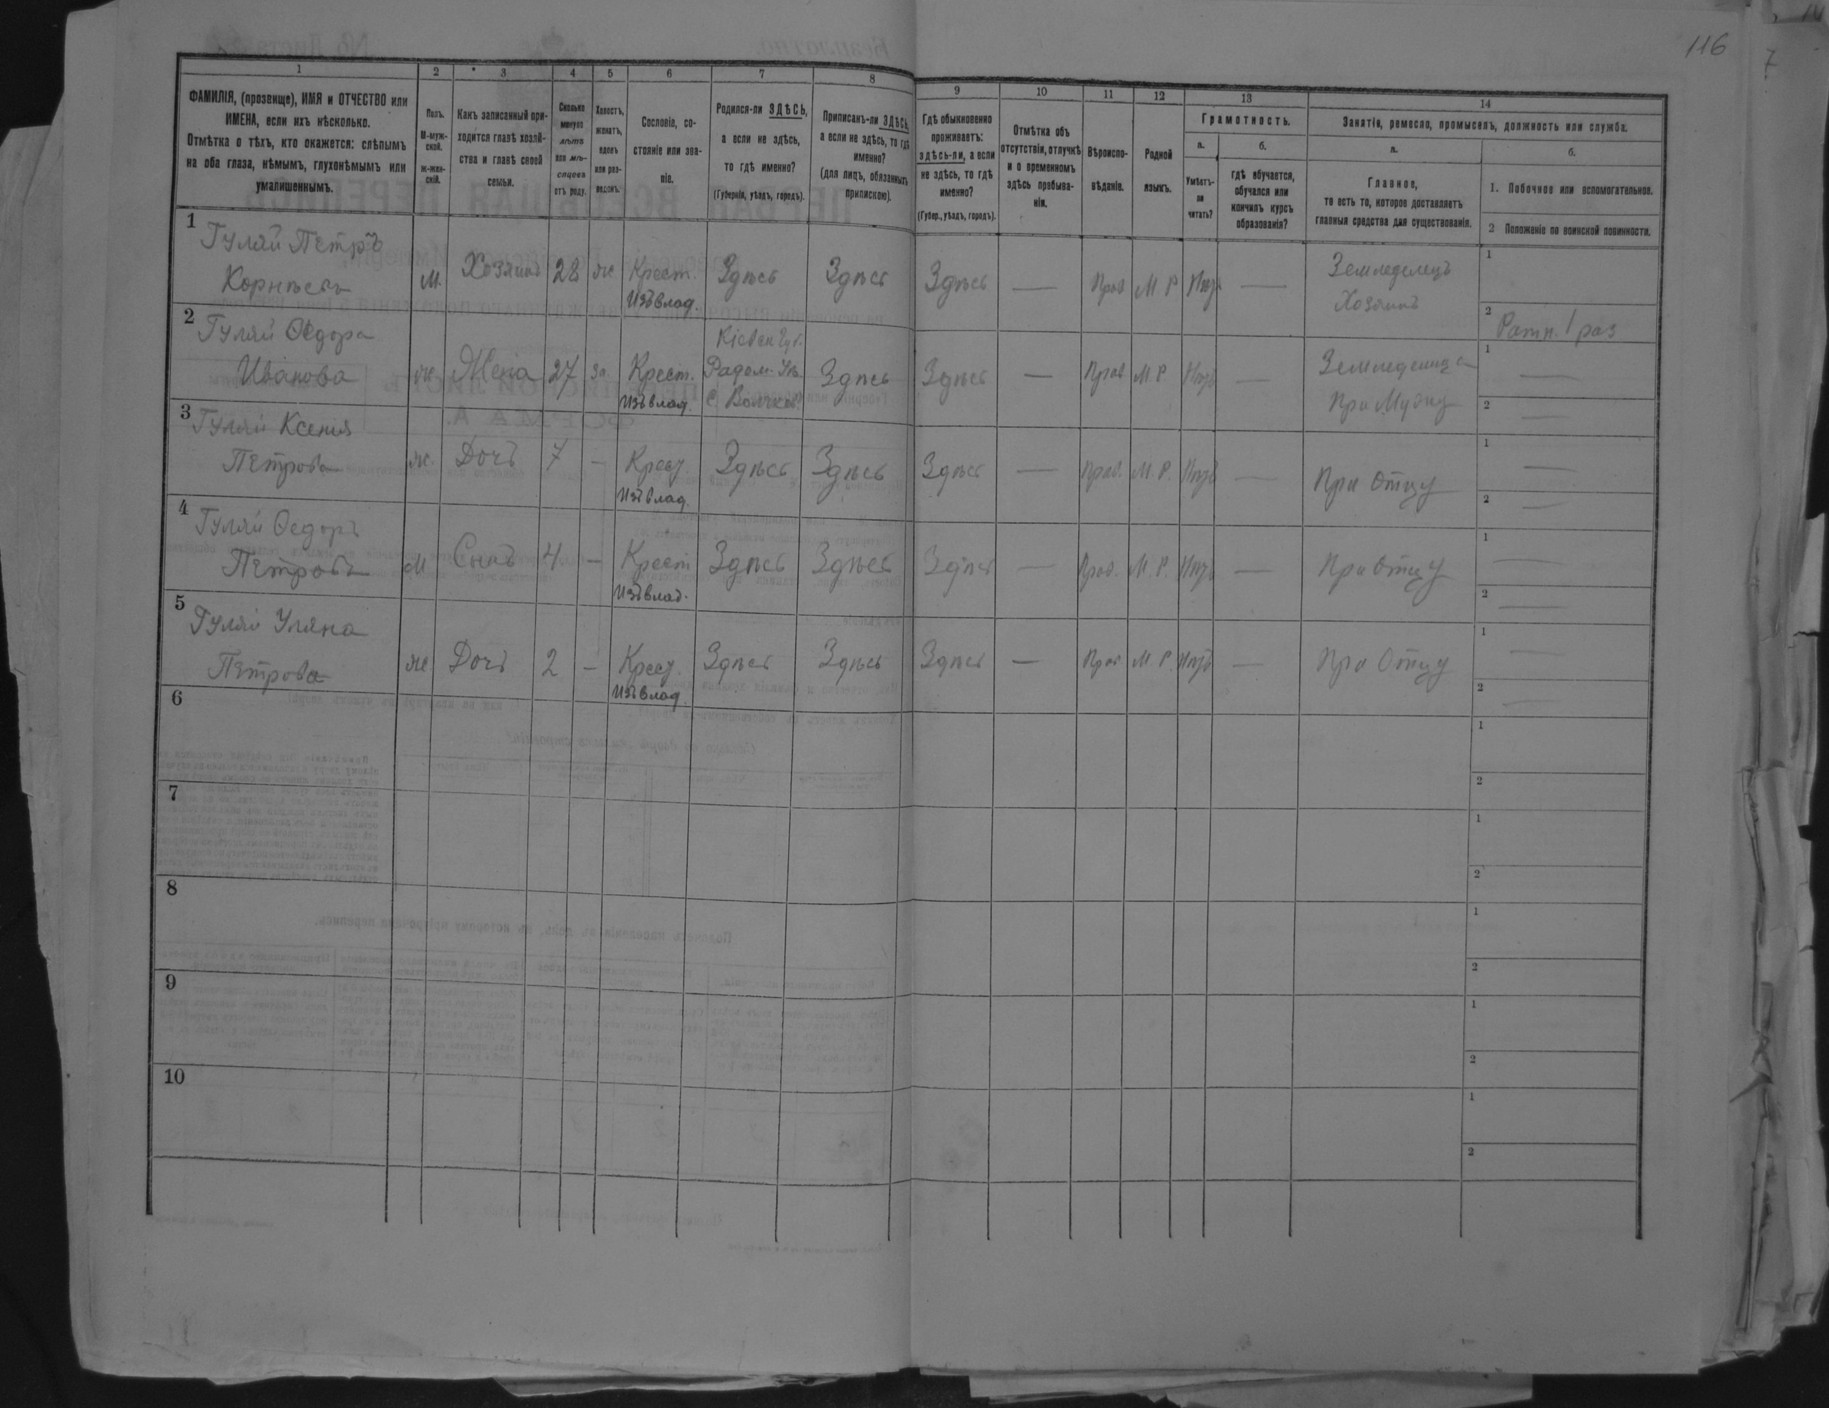 116
1
2
3
4
5
6
7
8
9
10
11
12
13
14
ФАМИЛІЯ, (прозвище), ИМЯ и ОТЧЕСТВО или
ИМЕНА, если ихъ нѣсколько.
Отмѣтка о тѣхъ, кто окажется: слѣпымъ
на оба глаза, нѣмымъ, глухонѣмымъ или
умалишеннымъ.
Полъ.
М-муж-
ской.
Ж-жен-
скій.
Какъ записанный при-
ходится главѣ хозяй-
ства и главѣ своей
семьи.
Сколько
минуло
лѣтъ
или мѣ-
сяцевъ
отъ роду.
Холостъ,
женатъ,
вдовъ
или раз-
веденъ.
Сословіе, со-
стояніе или зва-
ніе.
Родился-ли ЗДѢСЬ,
а если не здѣсь,
то гдѣ именно?
(Губернія, уѣздъ, городъ).
Приписанъ-ли ЗДѢСЬ,
а если не здѣсь, то гдѣ
именно?
(для лицъ, обязанныхъ
припискою).
Гдѣ обыкновенно
проживаетъ:
здѣсь-ли, а если
не здѣсь, то гдѣ
именно?
(Губер., уѣздъ, городъ).
Отмѣтка объ
отсутствіи, отлучкѣ
и о временномъ
здѣсь пребыва-
ніи.
Вѣроиспо-
вѣданіе.
Родной
языкъ.
Грамотность.
а.
Умѣетъ-
ли
читать?
б.
гдѣ обучается,
обучался или
кончилъ курсъ
образованія?
Занятіе, ремесло, промыселъ, должность или служба.
а.
Главное,
то есть то, которое доставляетъ
главныя средства для существованія.
б.
1. Побочное или вспомогательное.
2 Положеніе по воинской повинности.
1
Гуляй Петръ
Корнѣевъ
м.
Хозяинъ
28
же
Крест.
Изъ влад.
Здѣсь
Здѣсь
Здѣсь
—
Прав
М Р
Нѣтъ
—
Земледелецъ
Хозяинъ
1
2
Ратн. 1 раз
2
Гуляй Ѳедора
Иванова
же.
Жена
27
за.
Крест.
Изъ влад.
Кіевск Губ.
Радом. Уѣз.
Здѣсь
Здѣсь
—
Прав
М Р.
Нѣтъ
—
При Мужу
1
—
2
—
3
Гуляй Ксенія
Петрова
же.
Дочь
7
—
Крест.
Изъ влад.
Здѣсь
Здѣсь
Здѣсь
—
Прав.
М. Р.
Нѣтъ
—
При Отцу
1
—
2
—
4
Гуляй Ѳедоръ
Петровъ
м
Сынъ
4
—
Крест
Изъ влад.
Здѣсь
Здѣсь
Здѣсь
—
Прав.
М. Р.
Нѣтъ
—
При Отцу
1
—
2
—
5
Гуляй Уляна
Петрова
же
Дочь
2
—
Крест.
Изъ влад
Здѣсь
Здѣсь
Здѣсь
—
Прав
М. Р.
Нѣтъ
—
При Отцу
1
—
2
—
6
1
2
7
1
2
8
1
2
9
1
2
10
1
2